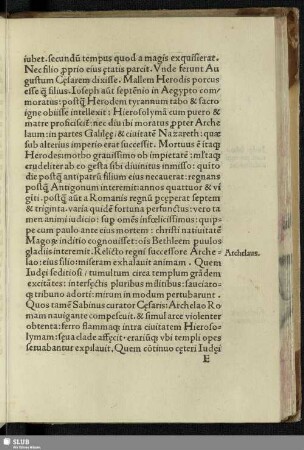 iubet. secundũ tempus quod a magis exquisserat.
Nec filio ꝓprio eius ętatis parcit. Vnde ferunt Au
gustum Cęsarem dixisse. Mallem Herodis porcus
esse ꝙ̃ filius. Ioseph aũt septẽnio in Aegypto com/
moratus: postꝙ̃ Herodem tyrannum tabo & sacro
igne obiisse intellexit: Hierosolymã cum puero &
matre proficiscit̃: nec diu ibi moratus ꝓpter Arche
laum: in partes Galilęę: & ciuitatẽ Nazareth: quæ
sub alterius imperio erat successit. Mortuus ẽ itaꝗ
Herodes morbo grauissimo ob impietatẽ: m̃ltaꝗ
crudeliter ab eo gesta sibi diuinitus immisso: quito
die postꝙ̃ antipatrũ filium eius necauerat: regnans
postꝙ̃ Antigonum interemit: annos quattuor & vi
giti. postꝙ̃ aũt a Romanis regnũ ꝑceperat septem
& triginta. varia quidẽ fortuna perfunctus: vero ta
men animi iudicio: sup om̃es infęlicissimus: quip/
pe cum paulo ante eius mortem: christi natiuitatẽ
Magoꝝ inditio cognouisset: oĩs Bethleem puulos
gladiis interemit. Relicto regni successore Arche/
lao: eius filio: miseram exhalauit animam. Quem
Iudęi seditiosi / tumultum circa templum grãdem
excitãtes: intersęctis pluribus militibus: fauciato/
ꝗ tribuno adorti: mirum in modum pertubarunt.
Quos tamẽ Sabinus curator Cęsaris: Archelao Ro
mam nauigante compescuit. & simul arce violenter
obtenta: ferro flammaꝗ intra ciuitatem Hieroso/
lymam: sęua clade affęcit. erariũꝗ vbi templi opes
seruabantur expilauit. Quem cõtinuo cęteri Iudęi
E
Archelaus.
SLUB